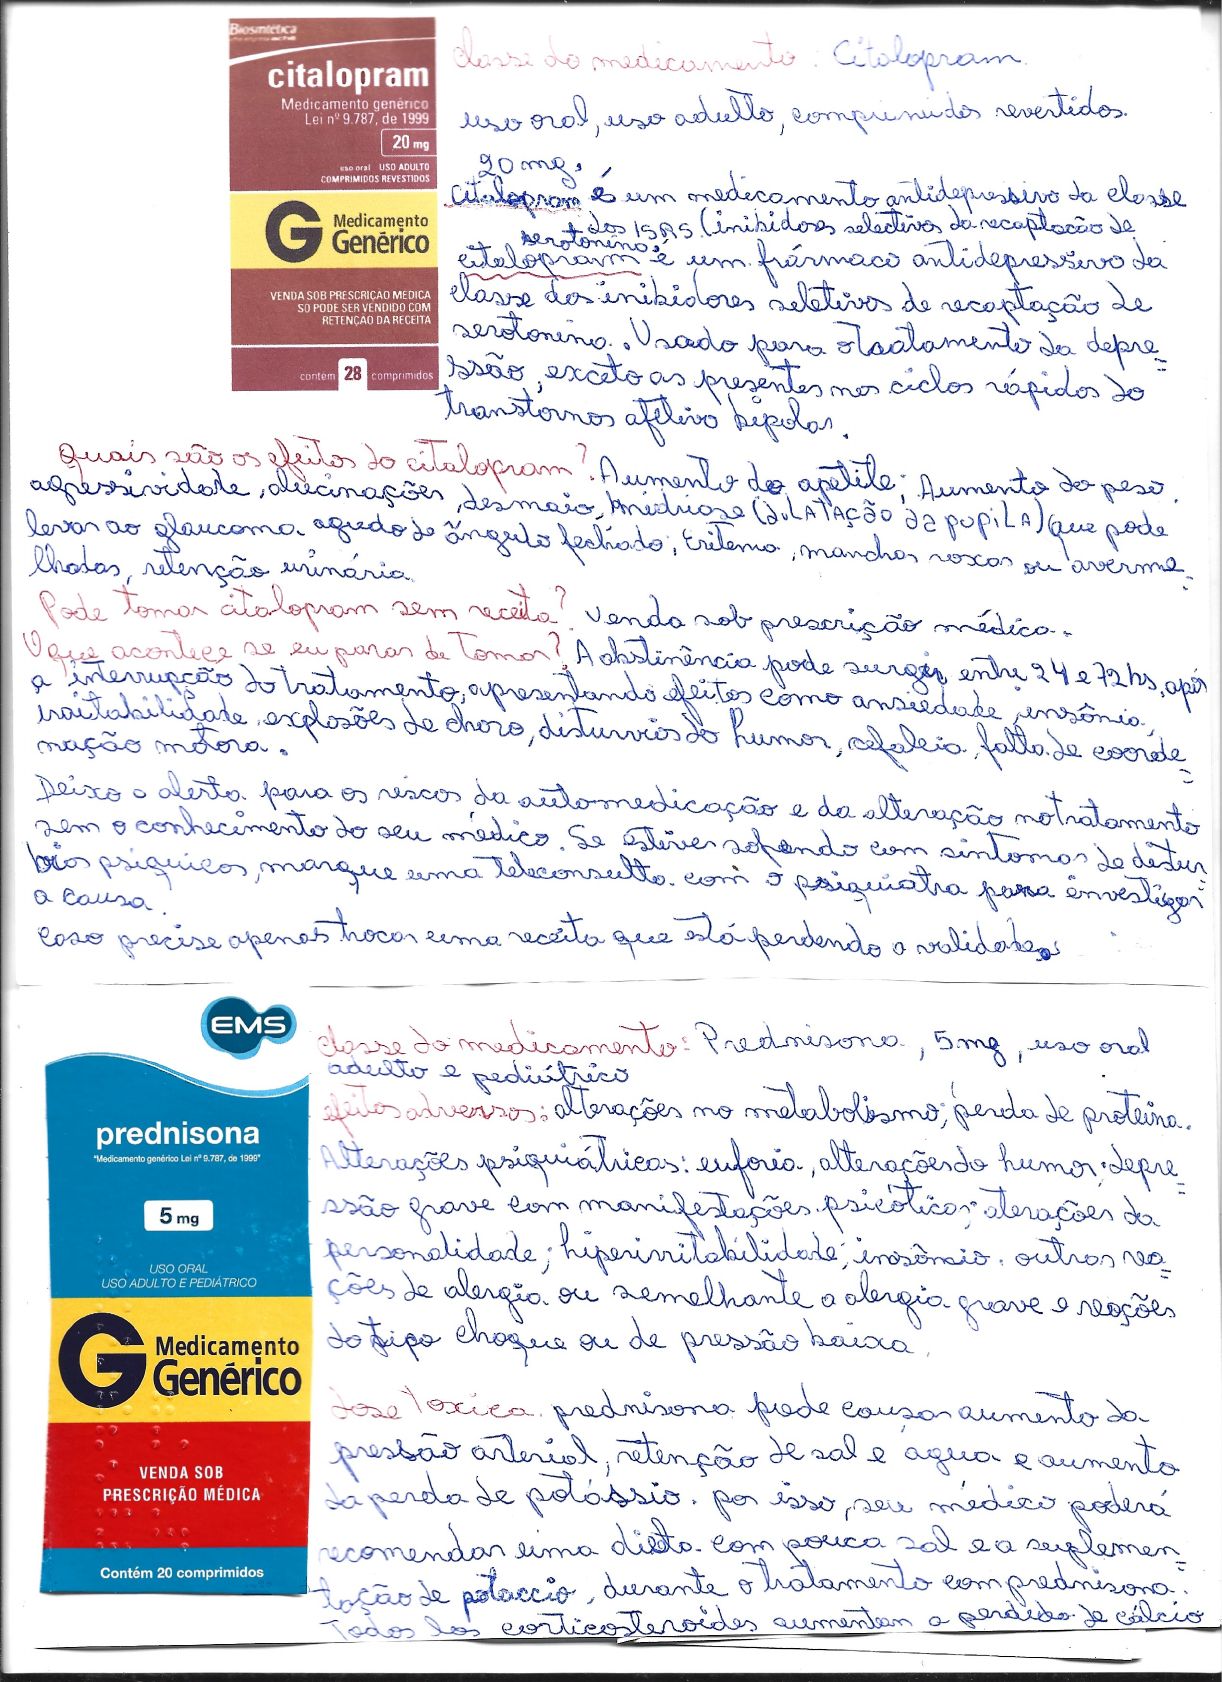 Biosintética
citalopram
Medicamento genérico
Lei nº 9.787, de 1999
20 mg
uso oral USO ADULTO
COMPRIMIDOS REVESTIDOS
G Medicamento
Genérico
VENDA SOB PRESCRIÇÃO MÉDICA
SÓ PODE SER VENDIDO COM
RETENÇÃO DA RECEITA
contém 28 comprimidos
classe do medicamento: Citalopram.
uso oral, uso adulto, comprimidos revertidos.
20 mg.
Citalopram é um medicamento antidepressivo da classe
dos ISRS (inibidores selectivos da recaptação de
serotonina.
citalopram é um fármaco antidepressivo da
classe dos inibidores seletivos de recaptação de
serotonina. Usado para o tratamento da depre=
ssão, exceto as presentes nos ciclos rápidos do
transtornos afetivo bipolar.
Quais são os efeitos do citalopram? Aumento do apetite; Aumento do peso.
agressividade, alucinações, desmaio, Midriase (diLATAÇÃO da pupiLA) que pode
levar ao glaucoma agudo de ângulo fechado; Eritema, manchas roxas ou averme=
lhadas, retenção urinária.
Pode tomar citalopram sem receita? Venda sob prescrição médica.
O que acontece se eu parar de Tomar? A abstinência pode surgir entre 24 e 72 hs, após
a interrupção do tratamento, apresentando efeitos como ansiedade, insônia,
irritabilidade, explosões de choro, distúrvios do humor, cefaleia, falta de coorde=
nação motora.
Deixo o alerta para os riscos da automedicação e da alteração no tratamento
sem o conhecimento do seu médico. Se estiver sofrendo com sintomas de distur=
bios psíquicos, marque uma teleconsulta com o psiquiatra para investigar
a causa.
Caso precise apenas trocar uma receita que está perdendo a validade.
EMS
prednisona
"Medicamento genérico Lei nº 9.787, de 1999"
5 mg
USO ORAL
USO ADULTO E PEDIÁTRICO
G Medicamento
Genérico
VENDA SOB
PRESCRIÇÃO MÉDICA
Contém 20 comprimidos
classe do medicamento: Prednisona, 5 mg, uso oral
adulto e pediátrico
efeitos adversos: alterações no metabolismo; perda de proteína.
Alterações psiquiátricas: euforia, alterações do humor; depre=
ssão grave com manifestações psicóticas; aterações da
personalidade; hiperirritabilidade; insônia. outras rea=
ções de alergia ou semelhante a alergia grave e reações
do tipo choque ou de pressão baixa.
Dose Toxica. prednisona pode causar aumento da
pressão arterial, retenção de sal e água e aumento
da perda de potássio. por isso, seu médico poderá
recomendar uma dieta com pouca sal e a suplemen=
tação de potaccio, durante o tratamento com prednisona.
Todos los corticosteroides aumentam a perdida de cálcio